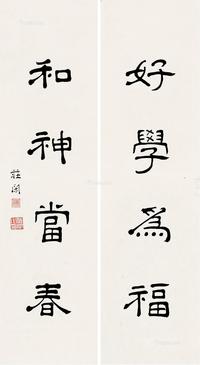 好學為福
和神當春
莊閑